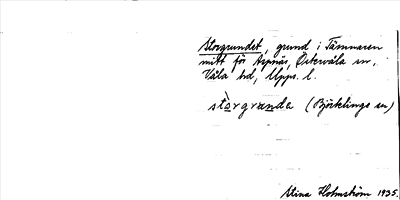 Storgrundet, grund i Tämnaren
mitt för Aspnäs, Östervåla sn,
Våla hd, Upps. l.
stòrgrunda (Björklings sn)
Stina Holmström 1935.